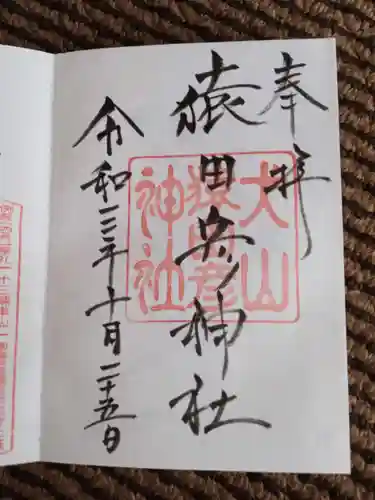 奉拝
猿田彦神社
令和三年十月二十五日
犬山
猿田彦
神社